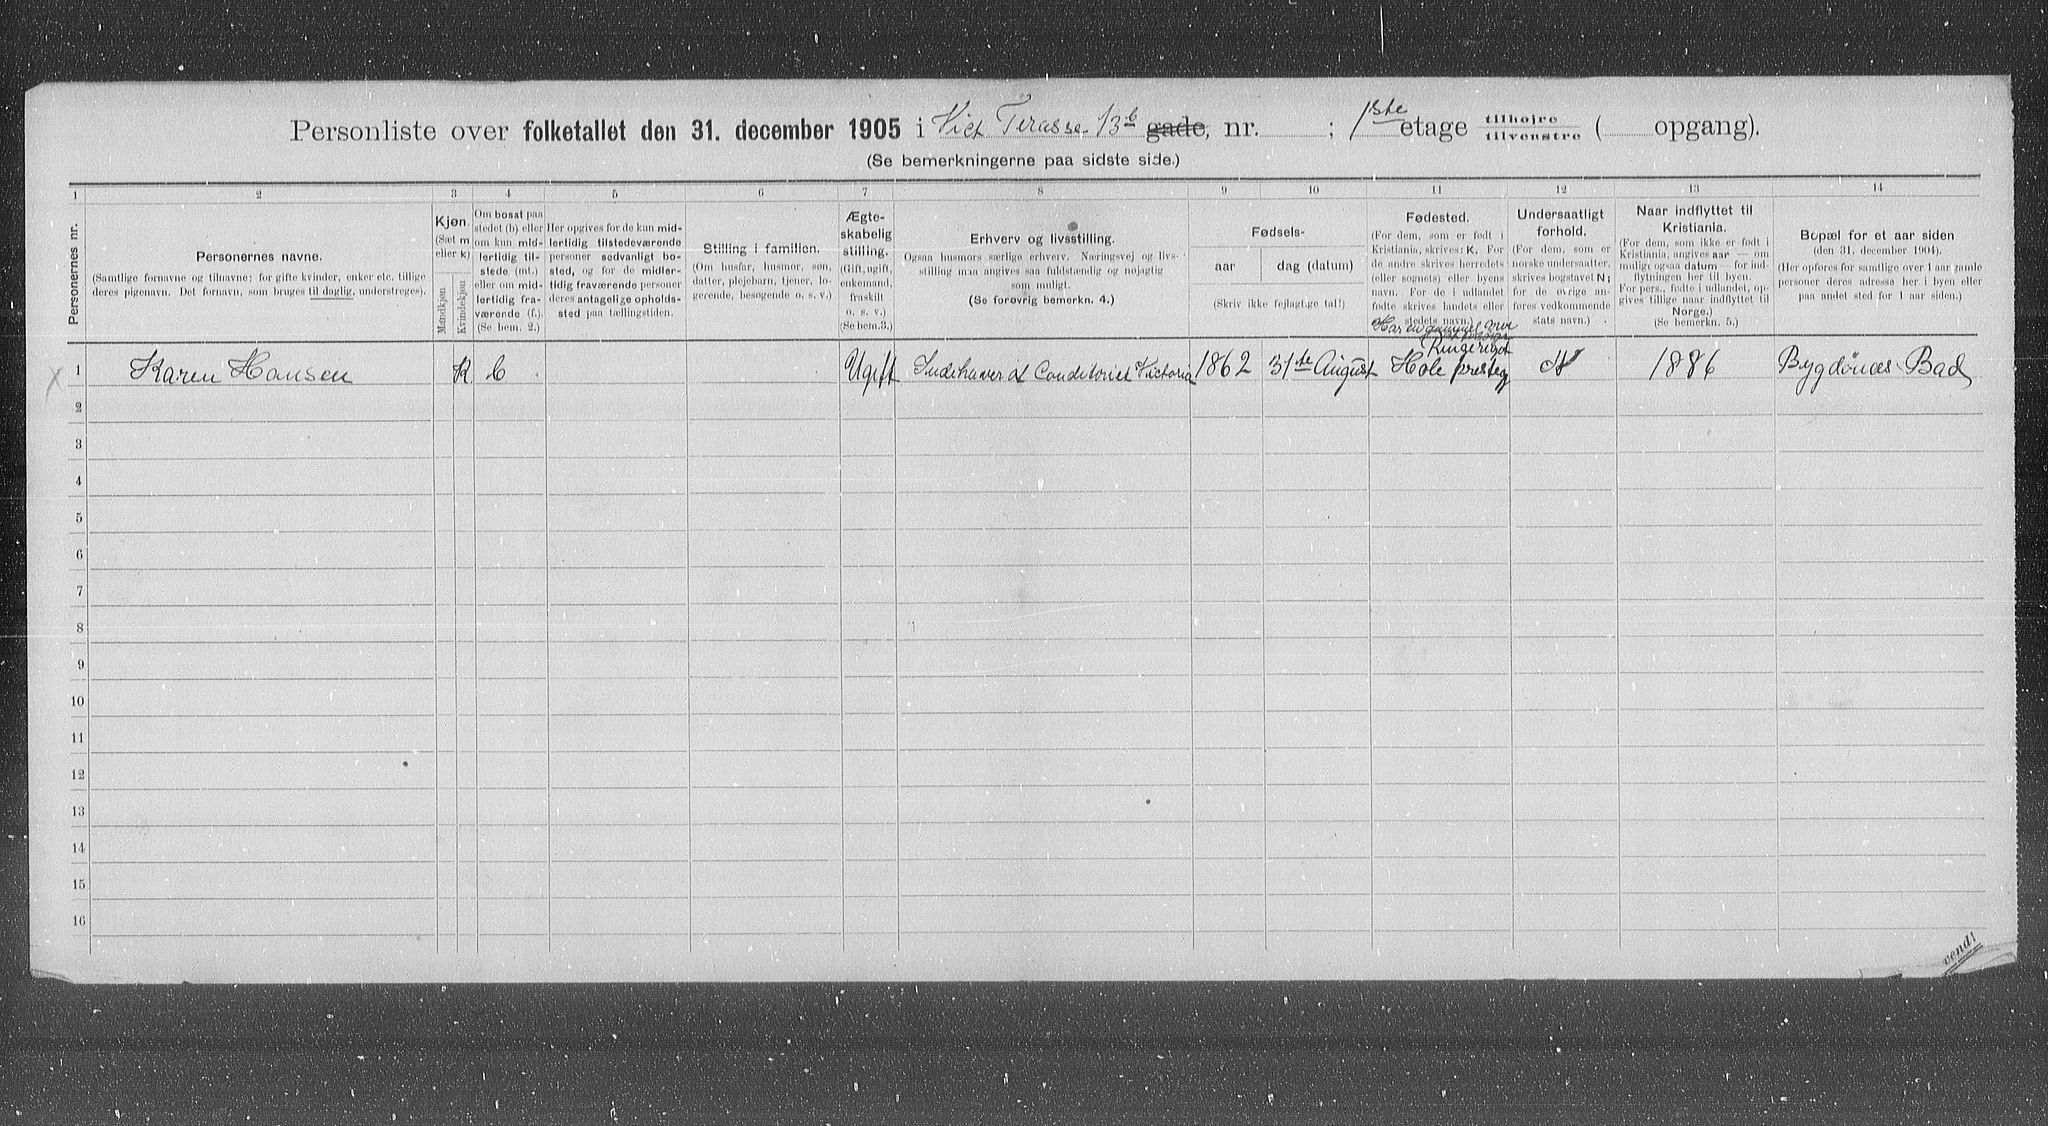 Personliste over folketallet den 31. december 1905 i Vict Terasse 13b gade, nr. ; 1ste etage tilhøjre tilvenstre ( opgang).
(Se bemerkningerne paa sidste side.)
1 2 3 4 5 6 7 8 9 10 11 12 13 14
Personernes nr.
Personernes navne.
(Samtlige fornavne og tilnavne; for gifte kvinder, enker etc. tillige
deres pigenavn. Det fornavn, som bruges til daglig, understreges).
Kjøn.
(Sæt m
eller k)
Mandkjøn
Kvindekjøn
Om bosat paa
stedet (b) eller
om kun mid-
lertidig til-
stede (mt.)
eller om mid-
lertidig fra-
værende (f.)
(Se bem. 2.)
Her opgives for de kun mid-
lertidig tilstedeværende
personer sedvanligt bo-
sted, og for de midler-
tidig fraværende personer
deres antagelige opholds-
sted paa tællingstiden.
Stilling i familien.
(Om husfar, husmor, søn,
datter, plejebarn, tjener, lo-
gerende, besøgende o. s. v.)
Ægte-
skabelig
stilling.
(Gift, ugift,
enkemand,
fraskilt
o. s. v.)
(Se bem.3.)
Erhverv og livsstilling.
Ogsaa husmors særlige erhverv. Næringsvej og livs-
stilling maa angives saa fuldstændig og nøjagtig
som muligt.
(Se forøvrig bemerkn. 4.)
Fødsels-
aar
dag (datum)
(Skriv ikke fejlagtige tal!)
Fødested.
(For dem, som er født i
Kristiania, skrives: K. For
de andre skrives herredets
(eller sognets) eller byens
navn. For de i udlandet
fødte skrives landets eller
stedets navn.)
Undersaatligt
forhold.
(For dem, som er
norske undersaatter,
skrives bogstavet N;
for de øvrige an-
føres vedkommende
stats navn.)
Naar indflyttet til
Kristiania.
(For dem, som ikke er født i
Kristiania, angives aar — om
mulig ogsaa datum — for ind-
flytningen her til byen.
For pers., fødte i udlandet, op-
gives tillige naar indflyttet til
Norge.)
(Se bemerkn. 5.)
Bopæl for et aar siden
(den 31. december 1904).
(Her opføres for samtlige over 1 aar gamle
personer deres adresse her i byen eller
paa andet sted for 1 aar siden.)
Ringeriget
X 1 Karen Hansen K b Ugift Indehaver af Conditoriet Victoria 1862 31te August Hole presteg N 1886 Bygdönæs Bad
2
3
4
5
6
7
8
9
10
11
12
13
14
15
16
vend!